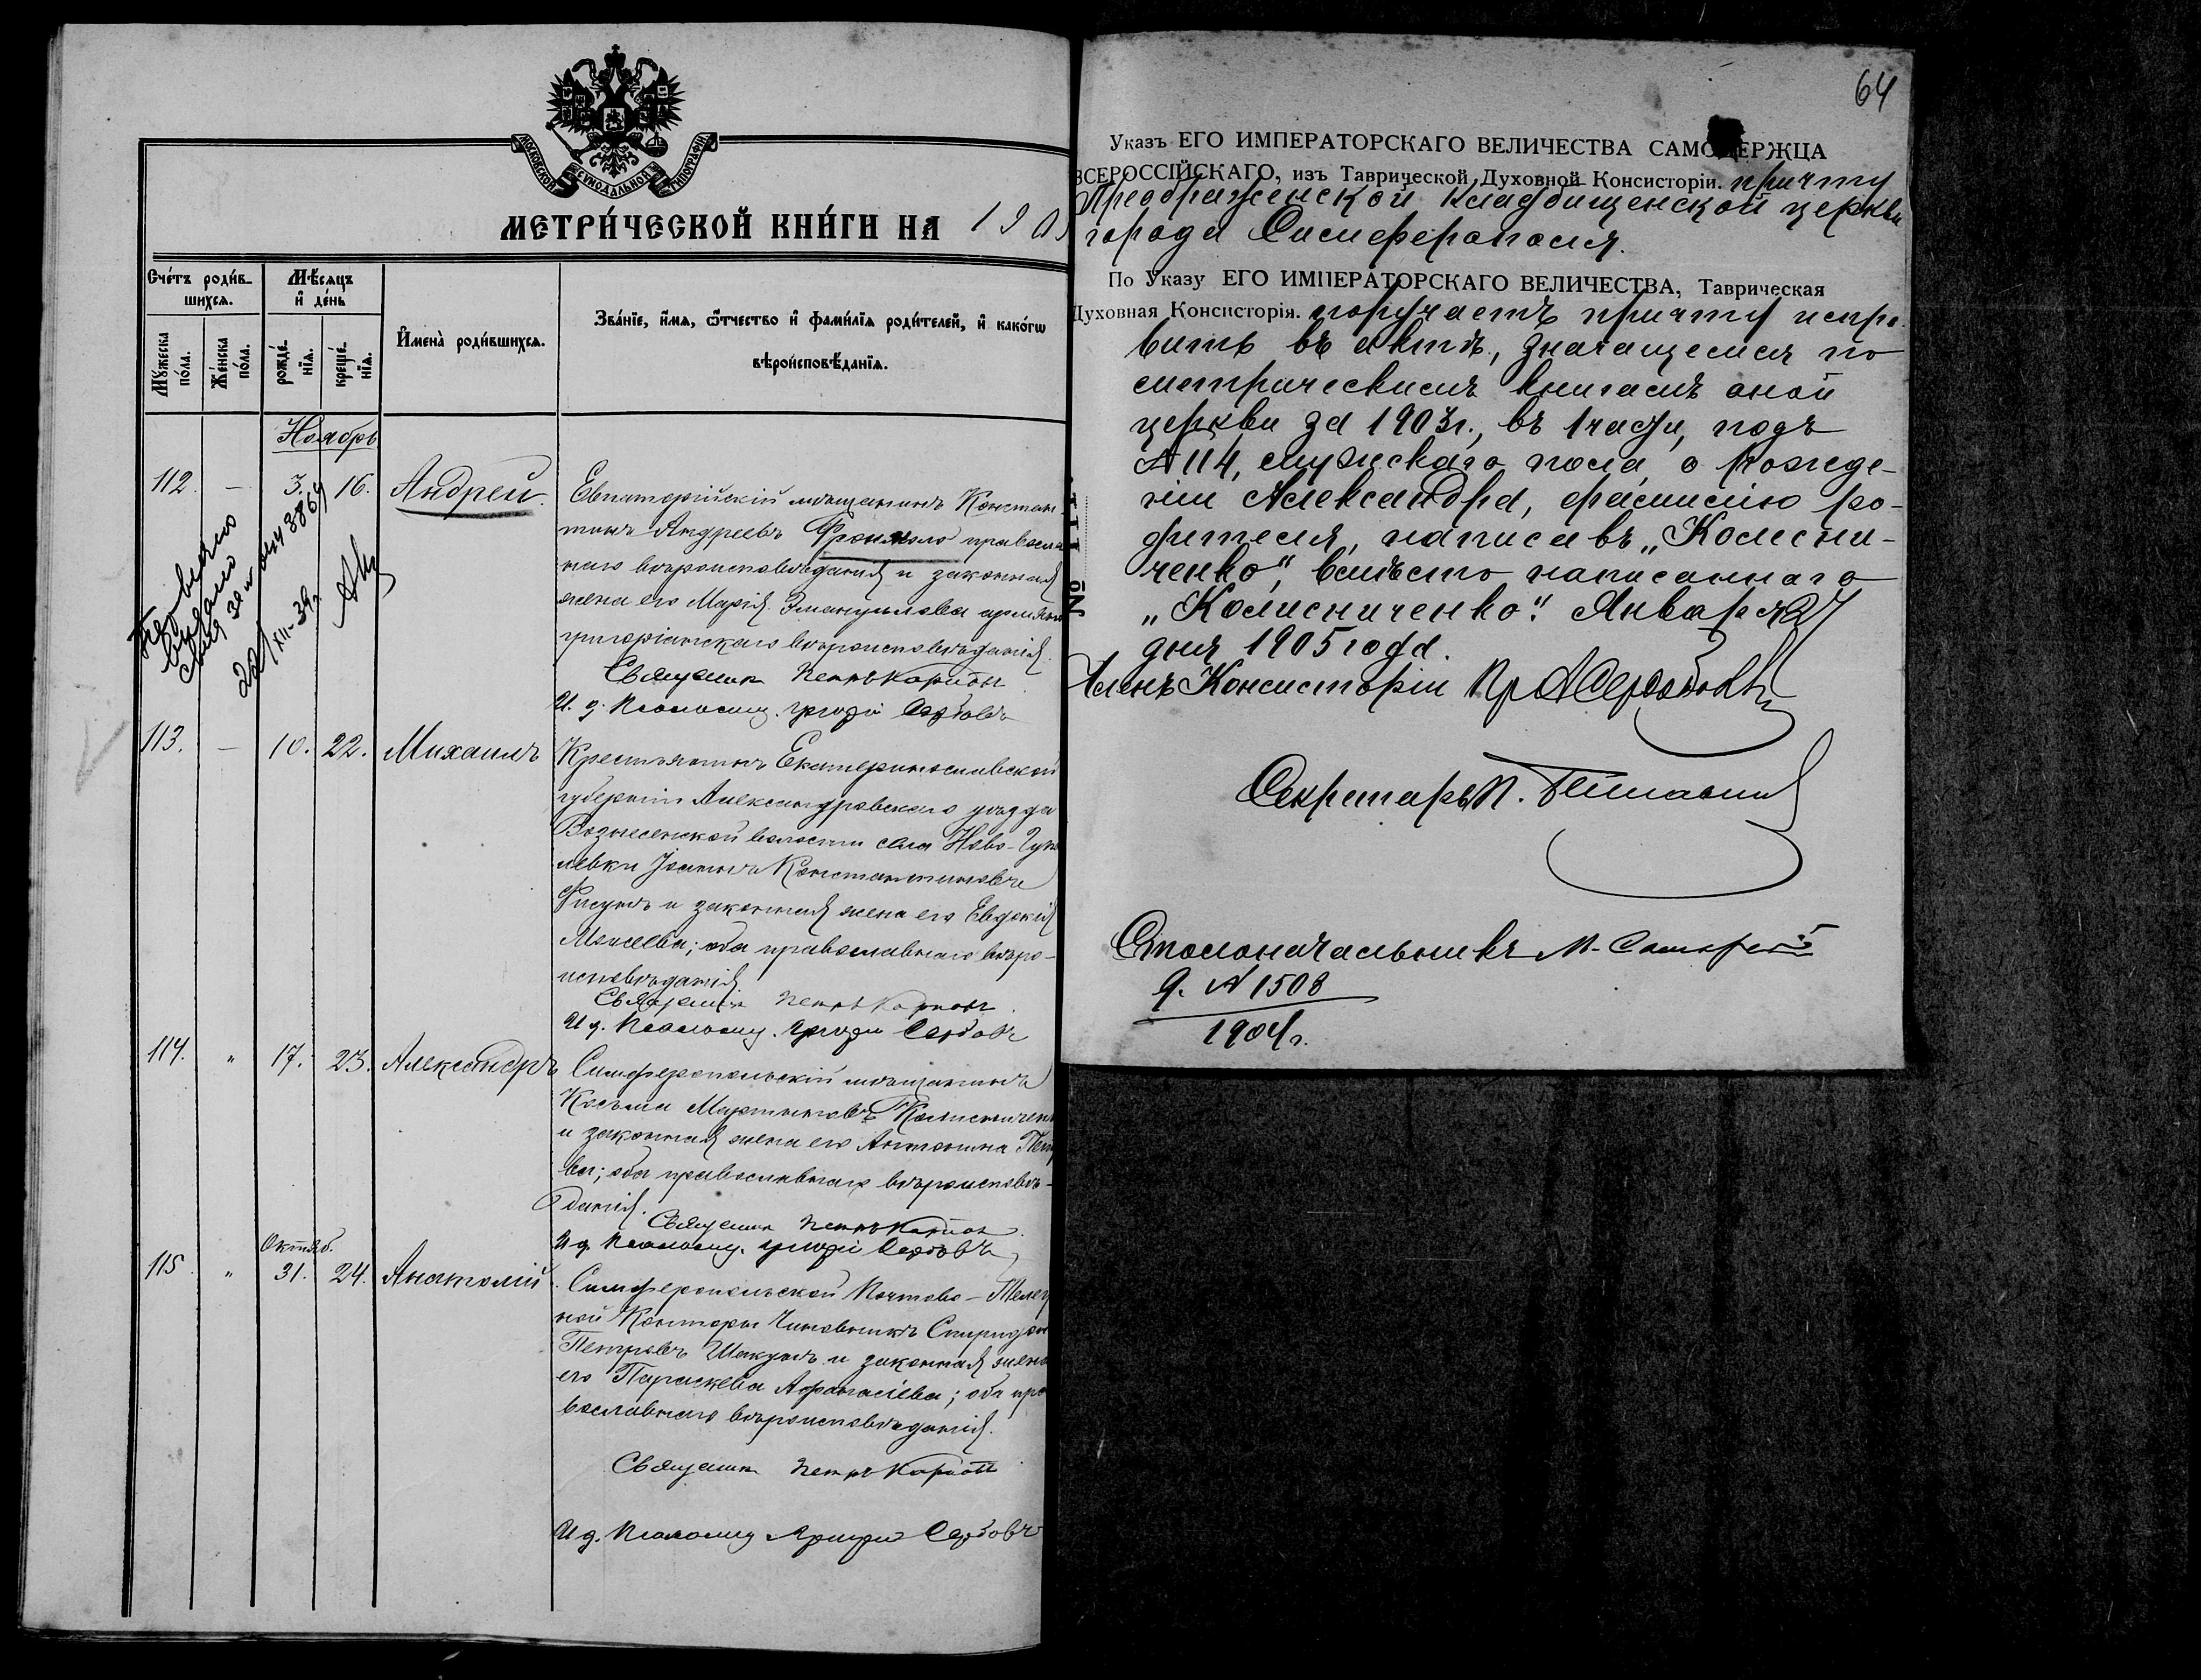 МОСКОВСКОЙ СѴНОДАЛЬНОЙ ТИПОГРАФІИ
МЕТРИ́ЧЕСКОЙ КНИ́ГИ НА 190
Сче́тъ роди́в-
шихся.
Мѣ́сяцъ
и҆ де́нь
И҆мена̀ роди́вшихся.
Зва́нїе, и҆́мя, ѻ҆́тчество и҆ фами́лїя роди́телей, и҆ како́гѡ
вѣроисповѣ́данїя.
Мꙋ́жеска
по́ла.
Же́нска
по́ла.
рожде́-
нїя.
креще́-
нїя.
Ноябрь
112. — 3. 16. Андрей.
Евпаторійскій мѣщанинъ Констан
тинъ Андреевъ православ
наго вѣроисповѣданія и законная
жена его Марія Эмануилова армяно
григоріанскаго вѣроисповѣданія.
Священникъ Петръ
И. д. Псаломщ. Сербовъ
выдано
22/XII-39г.
113. — 10. 22. Михаилъ
Крестьянинъ Екатеринославской
губерніи Александровскаго уѣзда
Вознесенской волости села Ново-Гуп
ловки Іоаннъ Константиновъ
Фисунъ и законная жена его Евдокія
Моисеева; оба православнаго вѣро-
исповѣданія.
Священникъ Петръ
И д. Псаломщ. Сербовъ
114. " 17. 23. Александръ
Симферопольскій мѣщанинъ
Косьма Мартиновъ Колисничен
и законная жена его Антонина Пет
ва; оба православнаго вѣроисповѣ-
данія.
Священникъ Петръ
И д. Псаломщ. Сербовъ
Октяб.
115 " 31. 24. Анатолій
Симферопольской Почтово-Телег
ной Конторы Чиновникъ Спиридон
Петровъ Шакунъ и законная жена
его Параскева Афанасіева; оба пра
вославнаго вѣроисповѣданія.
Священникъ Петръ
И д. Псаломщ Сербовъ
64
Указъ ЕГО ИМПЕРАТОРСКАГО ВЕЛИЧЕСТВА САМОДЕРЖЦА
ВСЕРОССІЙСКАГО, изъ Таврической Духовной Консисторіи. причту
Преображенской кладбищенской церкви
города Симферополя.
По Указу ЕГО ИМПЕРАТОРСКАГО ВЕЛИЧЕСТВА, Таврическая
Духовная Консисторія. поручаетъ причту испра-
вить въ актѣ, значащемся по
метрическимъ книгамъ оной
церкви за 1903г., въ 1 части, подъ
№ 114, мужскаго пола, о рожде-
ніи Александра, фамилію ро-
дителя, написавъ „Колесни-
ченко", вмѣсто написаннаго
„Колисниченко". Января 27
дня 1905 года.
Членъ Консисторіи Пр А Сердобовъ
Секретарь П.
Столоначальникъ М.
д. № 1508
1904г.
№